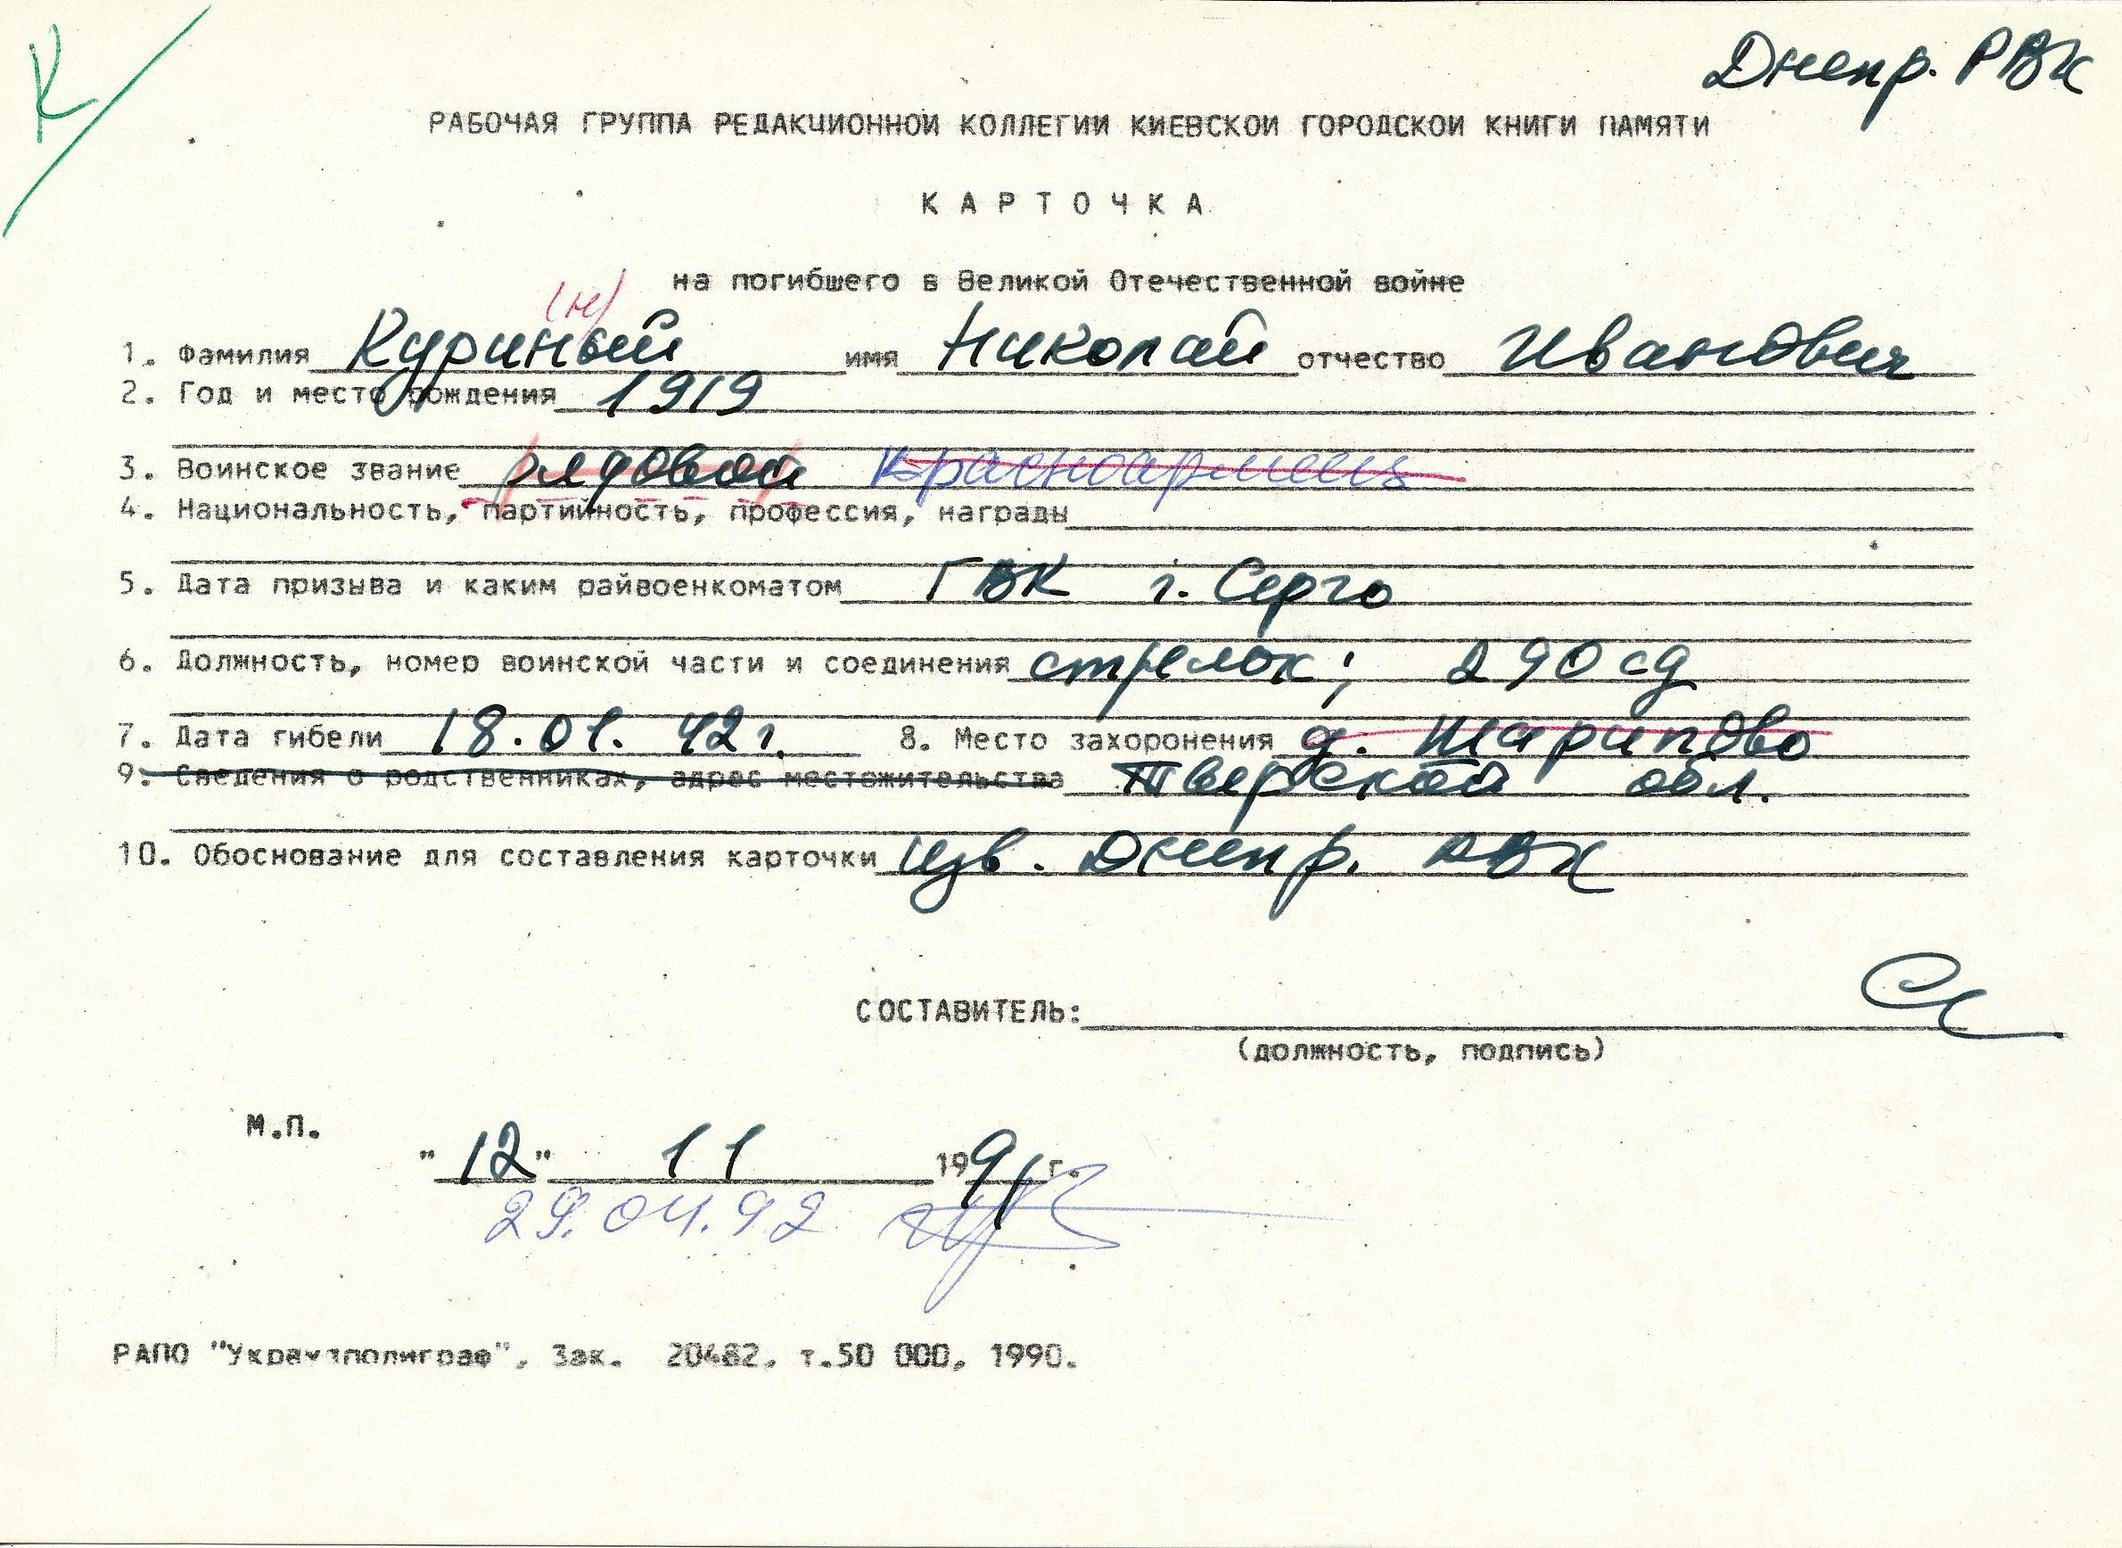 К
Днепр. РВК
РАБОЧАЯ ГРУППА РЕДАКЦИОННОЙ КОЛЛЕГИИ КИЕВСКОЙ ГОРОДСКОЙ КНИГИ ПАМЯТИ
К А Р Т О Ч К А
на погибшего в Великой Отечественной войне
(н)
1. Фамилия Куриный имя Николай отчество Иванович
2. Год и место рождения 1919
3. Воинское звание рядовой красноармеец
4. Национальность, партийность, профессия, награды
5. Дата призыва и каким райвоенкоматом ГВК г. Серго
6. Должность, номер воинской части и соединения стрелок; 290 сд
7. Дата гибели 18.01.42г. 8. Место захоронения д. Шарипово
9. Сведения о родственниках, адрес местожительства Тверской обл.
10. Обоснование для составления карточки изв. Днепр. РВК
СОСТАВИТЕЛЬ:
(должность, подпись)
М.П.
"12" 11 1991 г.
29.04.92
РАПО "Укрвузполиграф", Зак. 20482, т.50 000, 1990.